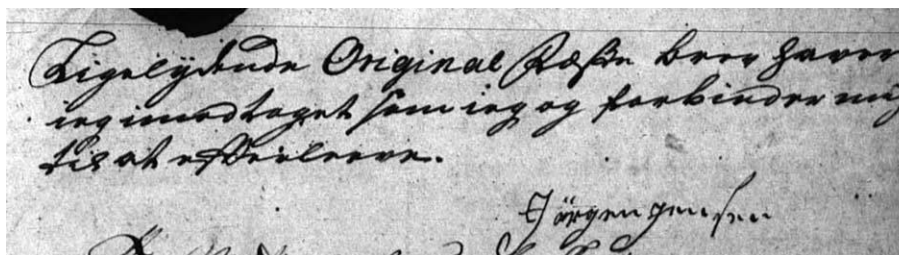 Ligelÿdende Original Fæste brev haver
ieg imodtaget som ieg og forbinder mig
til at efterleve.
Jörgen Jensen